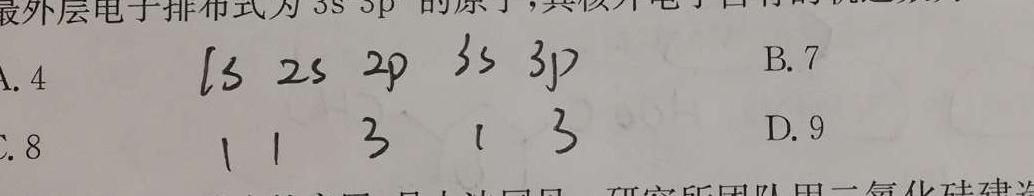 最外层电子排布式为 3s 3p 的原子,其核外电子占有的轨道
A. 4 1s 2s 2p 3s 3p B. 7
C. 8 1 1 3 1 3 D. 9
研究所团队用二氧化硅建